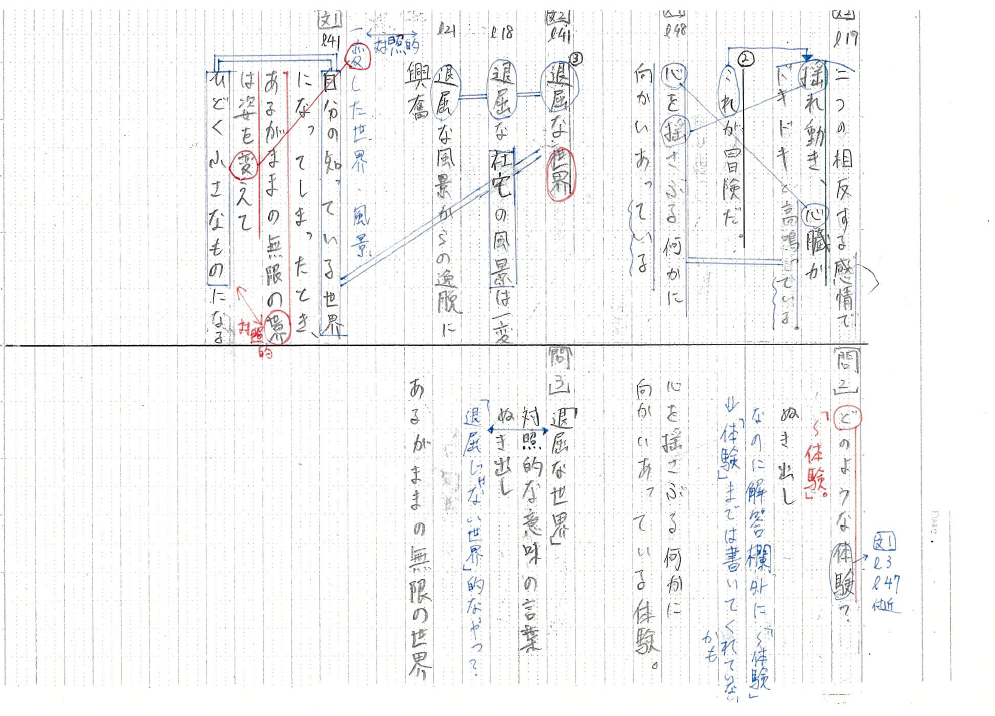 文2 l19
二つの相反する感情で
揺れ動き、心臓が
ドキドキと高鳴っている。
②
これが冒険だ。
文1 l48
心を揺さぶる何かに
向かいあっている
③
文2 l41
退屈な世界
l18
退屈な社宅の風景は一変
l21
退屈な風景からの逸脱に
興奮
対照的
一変した世界・風景
文1 l41
自分の知っている世界
になってしまったとき、
あるがままの無限の世界
は姿を変えて
ひどく小さなものになる
対照的
問2
どのような体験?
文1
l3
l47
付近
「〜体験。」
ぬき出し
なのに解答欄外に「〜体験」
↓「体験」までは書いてくれていない
かも
心を揺さぶる何かに
向かいあっている体験。
問3
「退屈な世界」
対照的な意味の言葉
ぬき出し
「退屈じゃない世界」的なやつ?
あるがままの無限の世界
Date